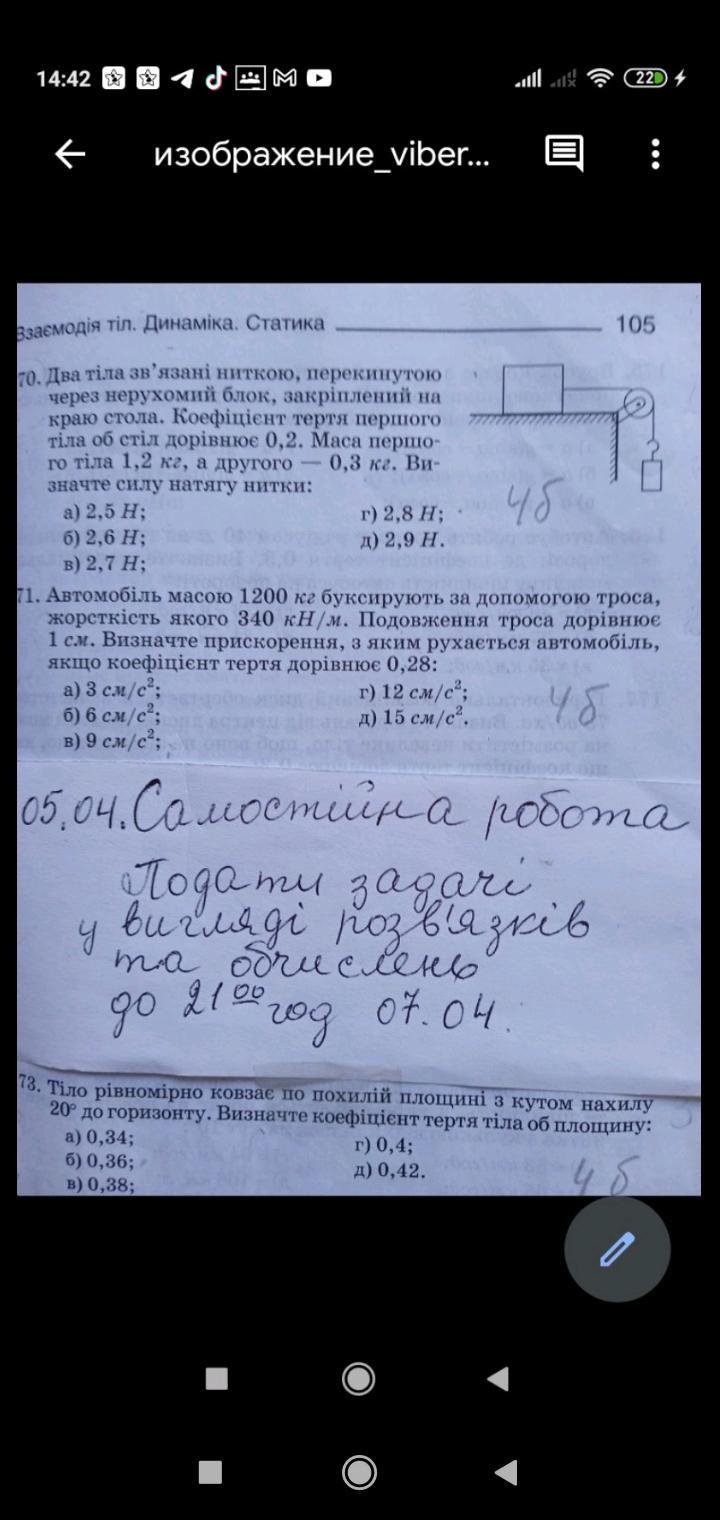 14:42
22
изображение_viber...
Взаємодія тіл. Динаміка. Статика 105
70. Два тіла зв'язані ниткою, перекинутою
через нерухомий блок, закріплений на
краю стола. Коефіцієнт тертя першого
тіла об стіл дорівнює 0,2. Маса першо-
го тіла 1,2 кг, а другого — 0,3 кг. Ви-
значте силу натягу нитки:
а) 2,5 Н; г) 2,8 Н;
б) 2,6 Н; д) 2,9 Н.
в) 2,7 Н;
4б
71. Автомобіль масою 1200 кг буксирують за допомогою троса,
жорсткість якого 340 кН/м. Подовження троса дорівнює
1 см. Визначте прискорення, з яким рухається автомобіль,
якщо коефіцієнт тертя дорівнює 0,28:
а) 3 см/с²; г) 12 см/с²;
б) 6 см/с²; д) 15 см/с².
в) 9 см/с²;
4б
05.04. Самостійна робота
Подати задачі
у вигляді розв'язків
та обчислень
до 21⁰⁰ год 07.04.
73. Тіло рівномірно ковзає по похилій площині з кутом нахилу
20° до горизонту. Визначте коефіцієнт тертя тіла об площину:
а) 0,34; г) 0,4;
б) 0,36; д) 0,42.
в) 0,38;
4б